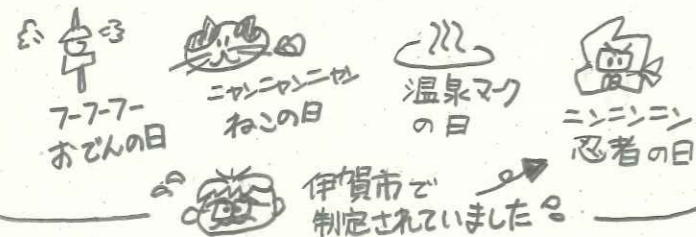 フーフーフー
おでんの日
ニャンニャンニャン
ねこの日
温泉マーク
の日
ニンニンニン
忍者の日
伊賀市で
制定されていました